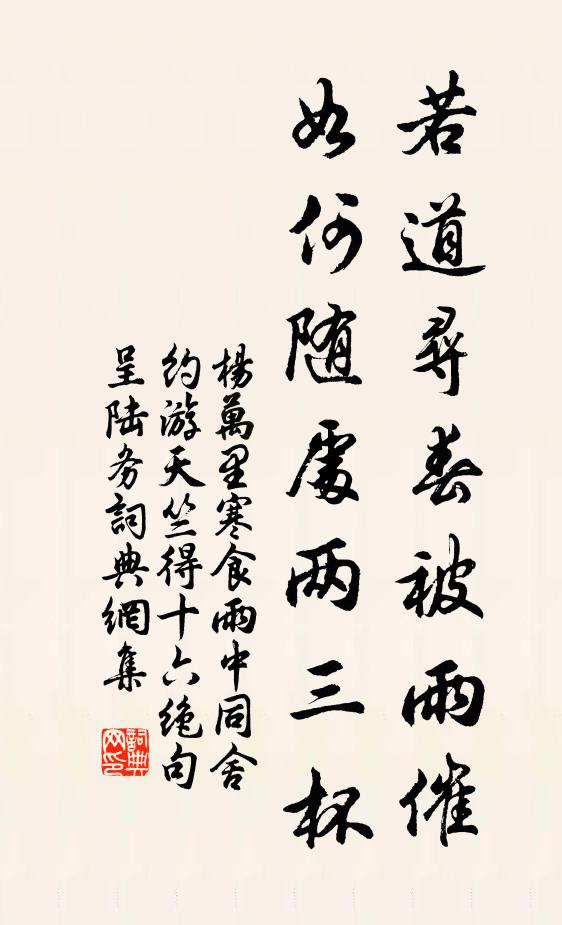 若道尋春被雨催
如何随處两三杯
楊萬里寒食雨中同舍
约游天竺得十六绝句
呈陆务詞典網集
詞典网印